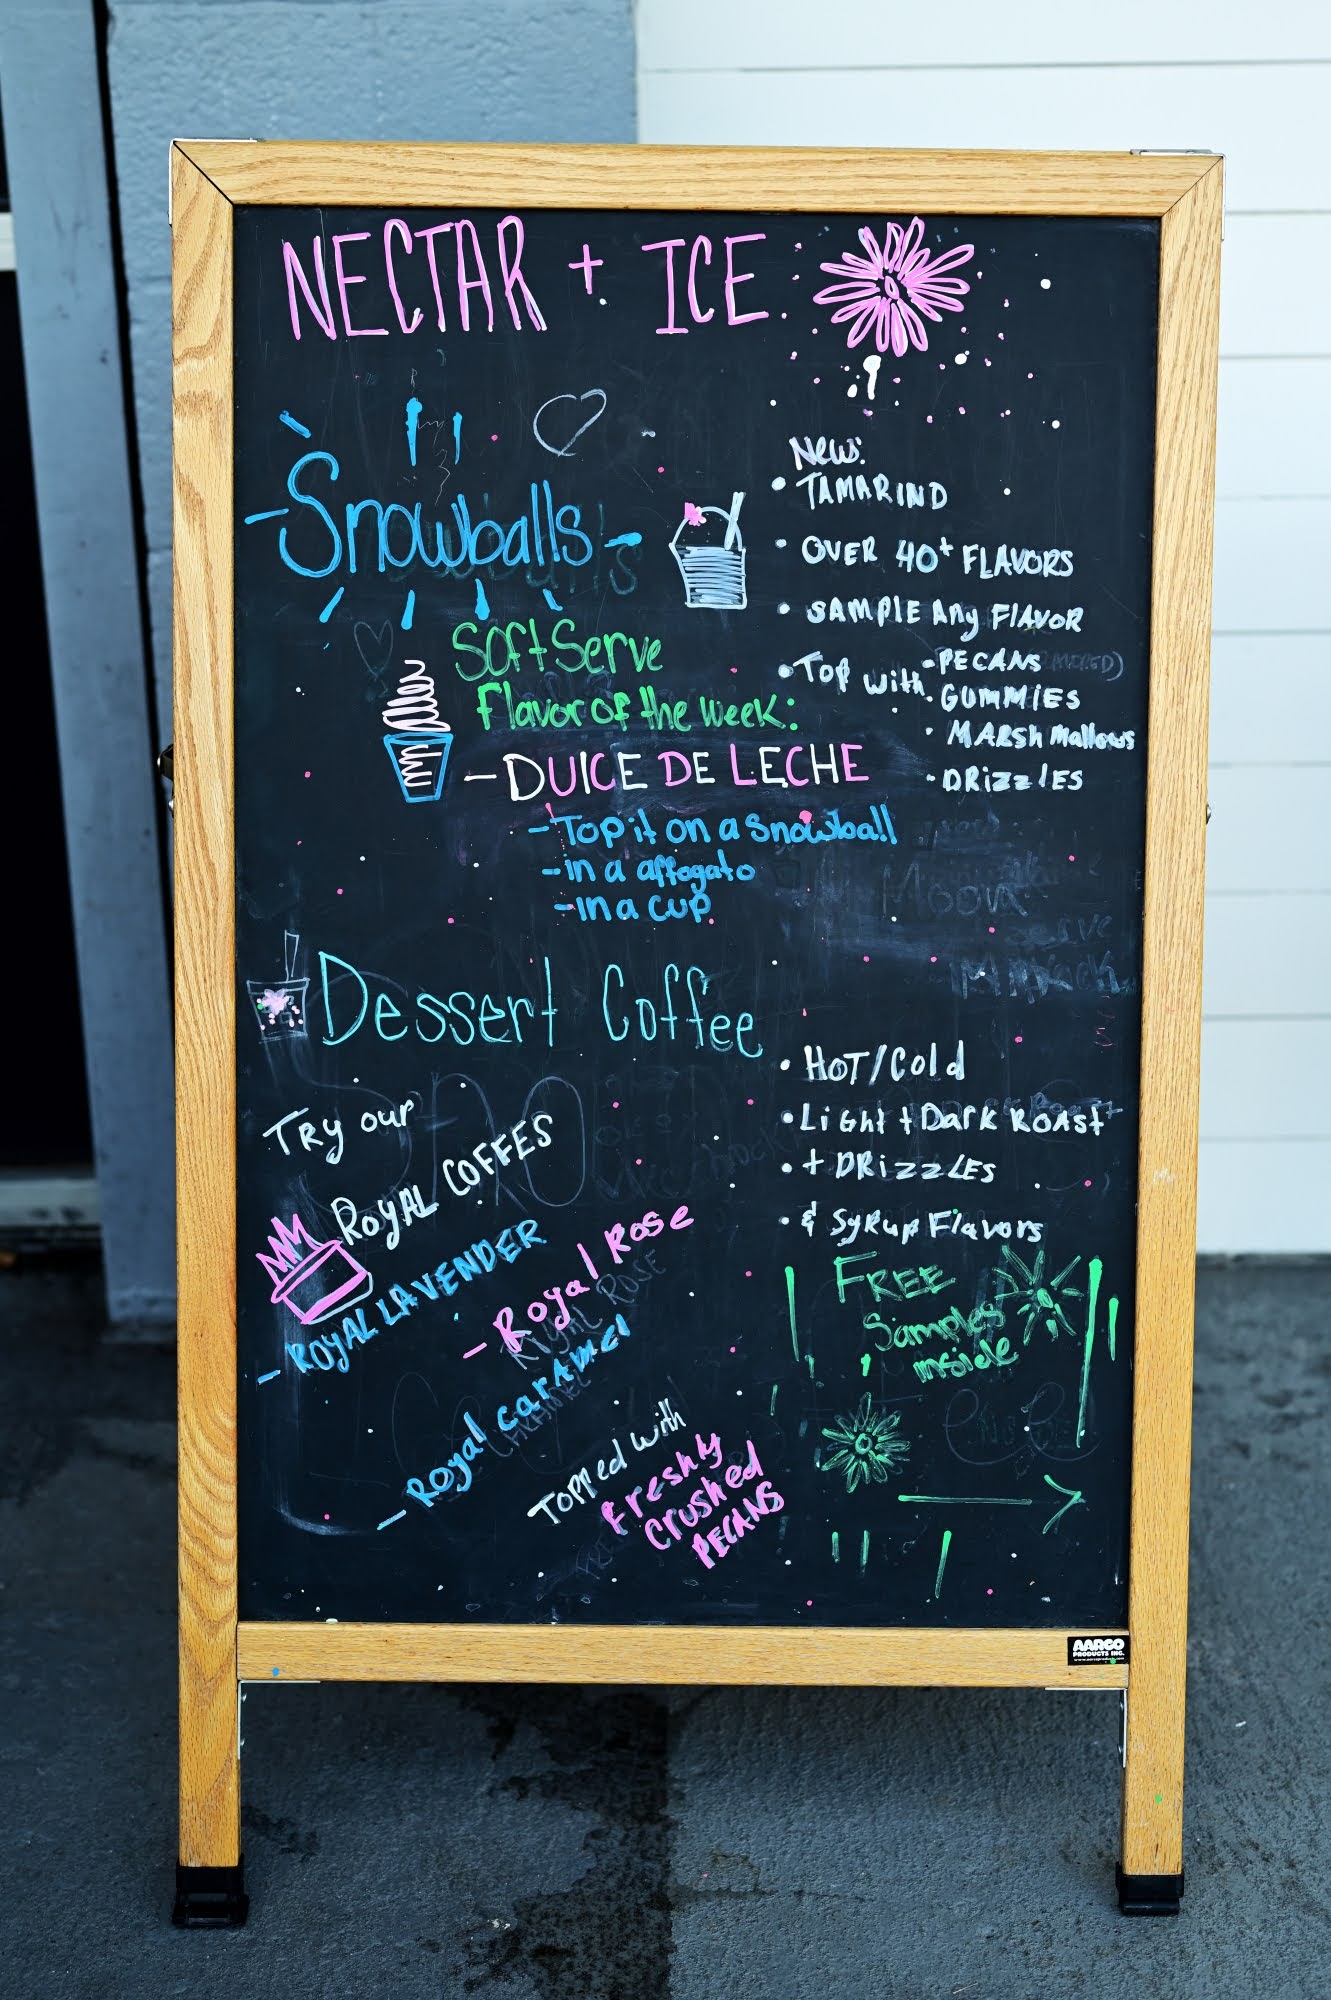 NECTAR + ICE
Snowballs
New:
• TAMARIND
• OVER 40+ FLAVORS
• SAMPLE Any FLAVOR
• TOP with
- PECANS
• GUMMIES
• MARShmallows
• DRizzlES
Soft Serve
Flavor of the week:
- DULCE DE LECHE
- Top it on a snowball
- in a affogato
- in a cup
Dessert Coffee
• HOT/Cold
• Light + Dark ROAST
• + DRizzLES
• & SyRup Flavors
TRy our
ROYAL COFFES
- ROYAL LAVENDER
- Royal Rose
- Royal caramel
Topped with
Freshly
Crushed
PECANS
FREE
Samples
inside
AARCO
PRODUCTS INC.